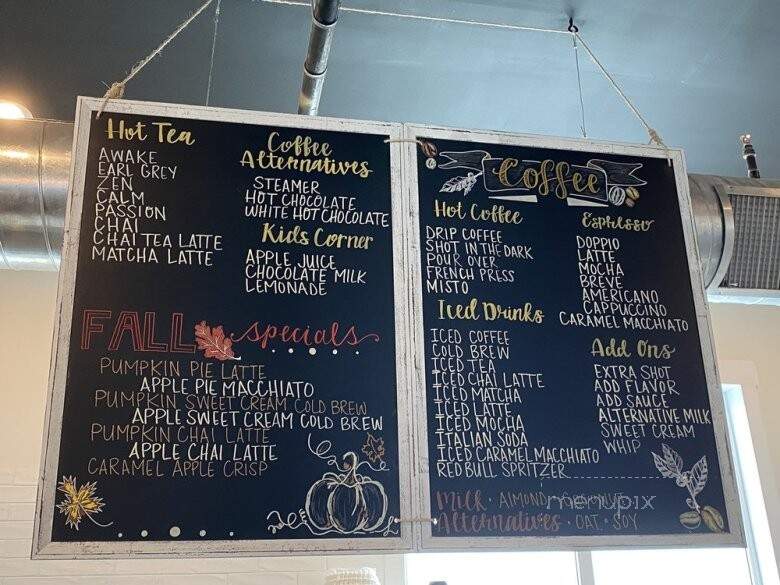 Hot Tea
AWAKE
EARL GREY
ZEN
CALM
PASSION
CHAI
CHAI TEA LATTE
MATCHA LATTE
Coffee
Alternatives
STEAMER
HOT CHOCOLATE
WHITE HOT CHOCOLATE
Kids Corner
APPLE JUICE
CHOCOLATE MILK
LEMONADE
FALL specials
PUMPKIN PIE LATTE
APPLE PIE MACCHIATO
PUMPKIN SWEET CREAM COLD BREW
APPLE SWEET CREAM COLD BREW
PUMPKIN CHAI LATTE
APPLE CHAI LATTE
CARAMEL APPLE CRISP
Coffee
Hot Coffee
DRIP COFFEE
SHOT IN THE DARK
POUR OVER
FRENCH PRESS
MISTO
Iced Drinks
ICED COFFEE
COLD BREW
ICED TEA
ICED CHAI LATTE
ICED MATCHA
ICED LATTE
ICED MOCHA
ITALIAN SODA
ICED CARAMEL MACCHIATO
RED BULL SPRITZER
Espresso
DOPPIO
LATTE
MOCHA
BREVE
AMERICANO
CAPPUCCINO
CARAMEL MACCHIATO
Add Ons
EXTRA SHOT
ADD FLAVOR
ADD SAUCE
ALTERNATIVE MILK
SWEET CREAM
WHIP
Milk · ALMOND · COCONUT
Alternatives · OAT · SOY
menupix